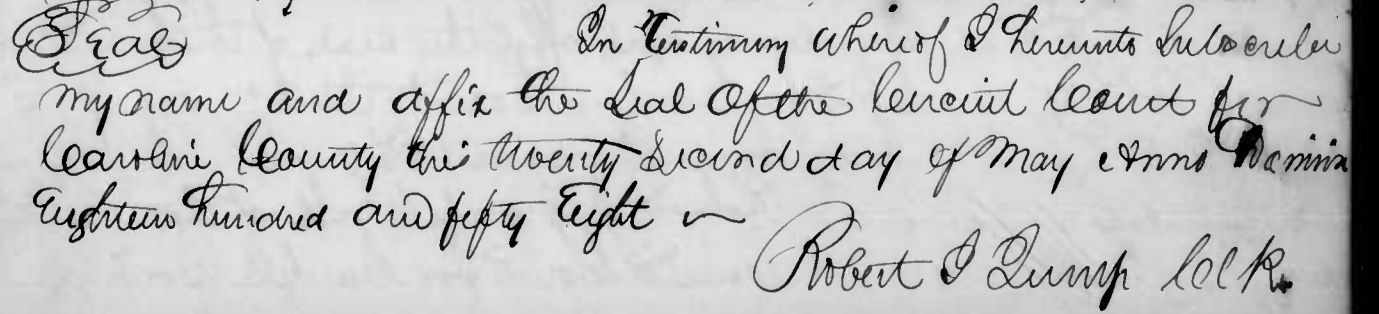 Seal In Testimony whereof I hereunto Subscribe
my name and affix the Seal Of the Circuit Court for
Caroline County this twenty Second day of May Anno Domini
Eighteen hundred and fifty Eight
Robert I Jump Clk.